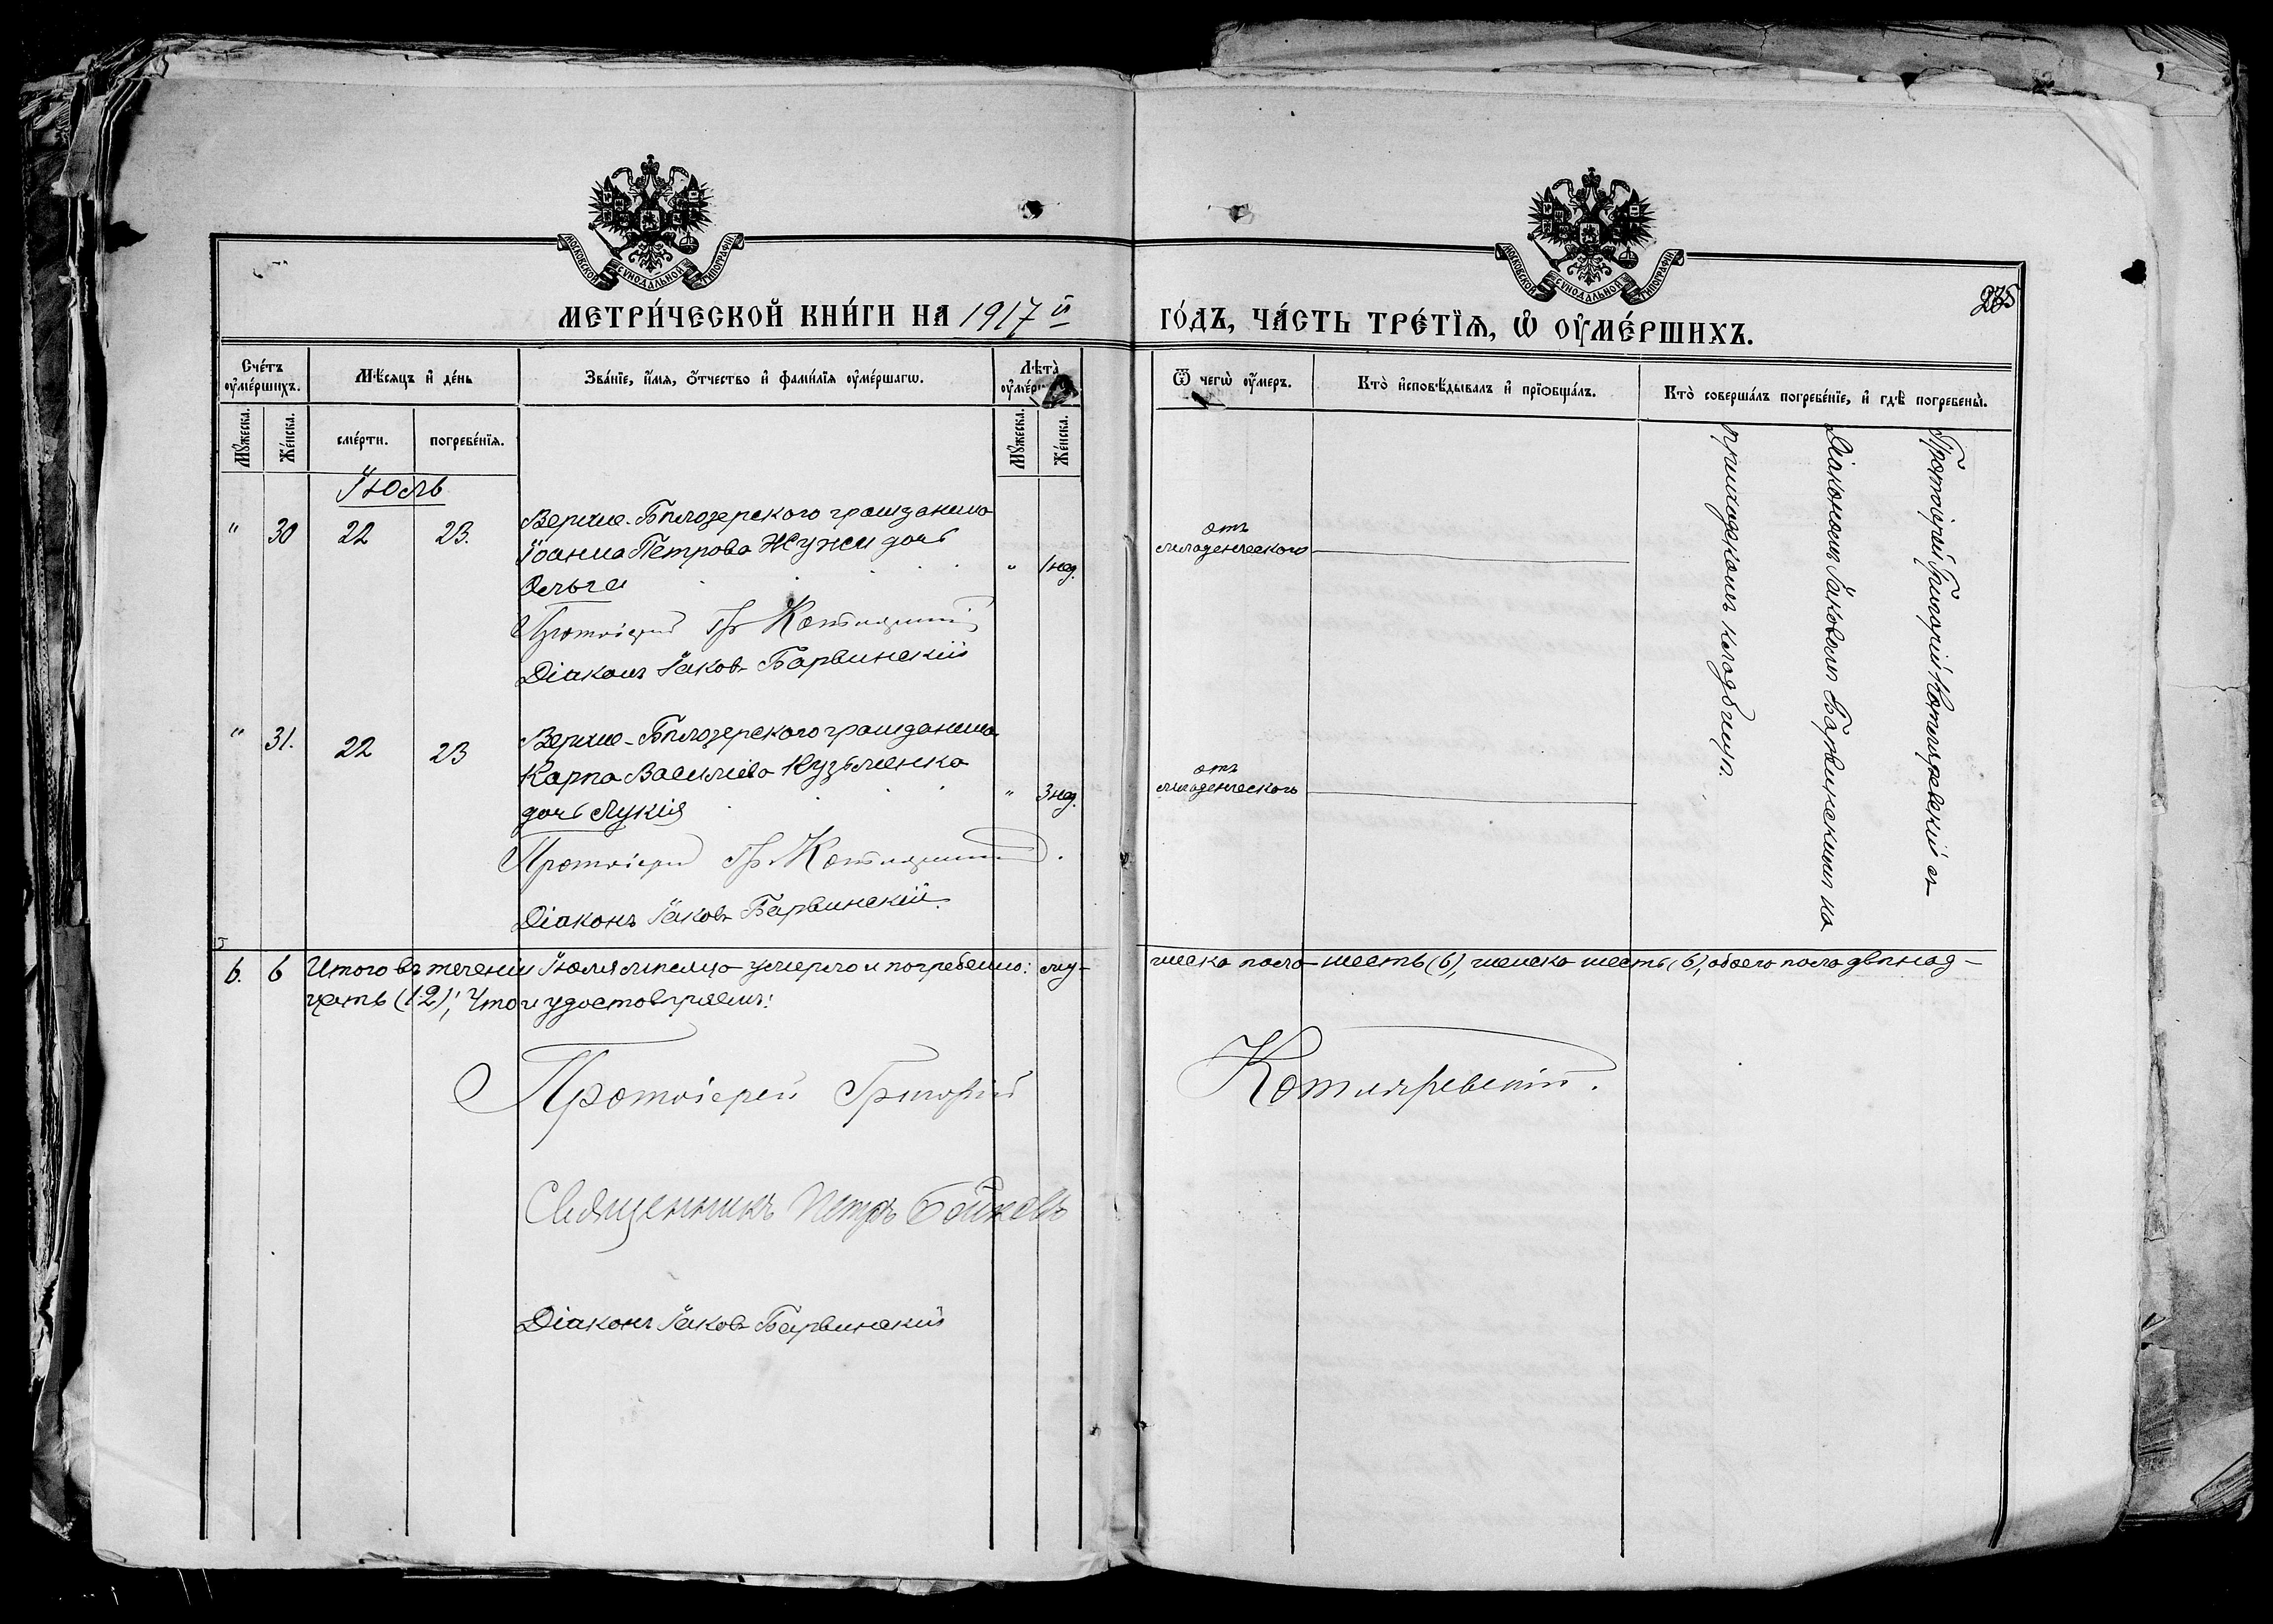 МОСКОВСКОЙ СУНОДАЛЬНОЙ ТИПОГРАФІИ
МОСКОВСКОЙ СУНОДАЛЬНОЙ ТИПОГРАФІИ
МЕТРИ́ЧЕСКОЙ КНИ́ГИ НА 1917 й
ГО́ДЪ, ЧА́СТЬ ТРЕ́ТІѦ, Ѡ҆ ОУ҆МЕ́РШИХЪ.
275
Сче́тъ оу҆ме́ршихъ.
Мѣ́сѧцъ и҆ де́нь
Зва́нїе, и҆́мѧ, о҆́тчество и҆ фами́лїѧ оу҆ме́ршагѡ.
Лѣ́та
Ѿ чегѡ̀ оу҆́меръ.
Кто̀ и҆сповѣ́дывалъ и҆ прїѡбща́лъ.
Кто̀ соверша́лъ погребе́нїе, и҆ гдѣ̀ погребены̀.
Мꙋ́жеска.
Же́нска.
сме́рти.
погребе́нїѧ.
Мꙋ́жеска.
Же́нска.
Іюль
" 30 22 23.
Верхне-Бѣлозерского гражданина
Іоанна Петрова Жужи дочь
Ольга
" 1 нед.
отъ
младенческого
Протоіерей Гр Котляревскій
Діаконъ Іаковъ Барвинскій
" 31. 22 23
Верхне-Бѣлозерского гражданина
Карпа Василіева Кузьменко
дочь Лукія
" 3 нед.
отъ
младенческого
Протоіерей Гр Котляревскій.
Діаконъ Іаковъ Барвинскій.
Протоіерей Григорій Котляревскій съ
Діакономъ Іаковомъ Барвинскимъ на
приходскомъ кладбищѣ.
6. 6 Итого въ теченіи Іюля мѣсяца умерло и погребено: муж-
жеска пола шесть (6), женска шесть (6), обоего пола двѣнад-
цать (12); Что и удостовѣряемъ:
Протоіерей Григорій Котляревскій.
Священникъ Петръ Бойковъ
Діаконъ Іаковъ Барвинскій